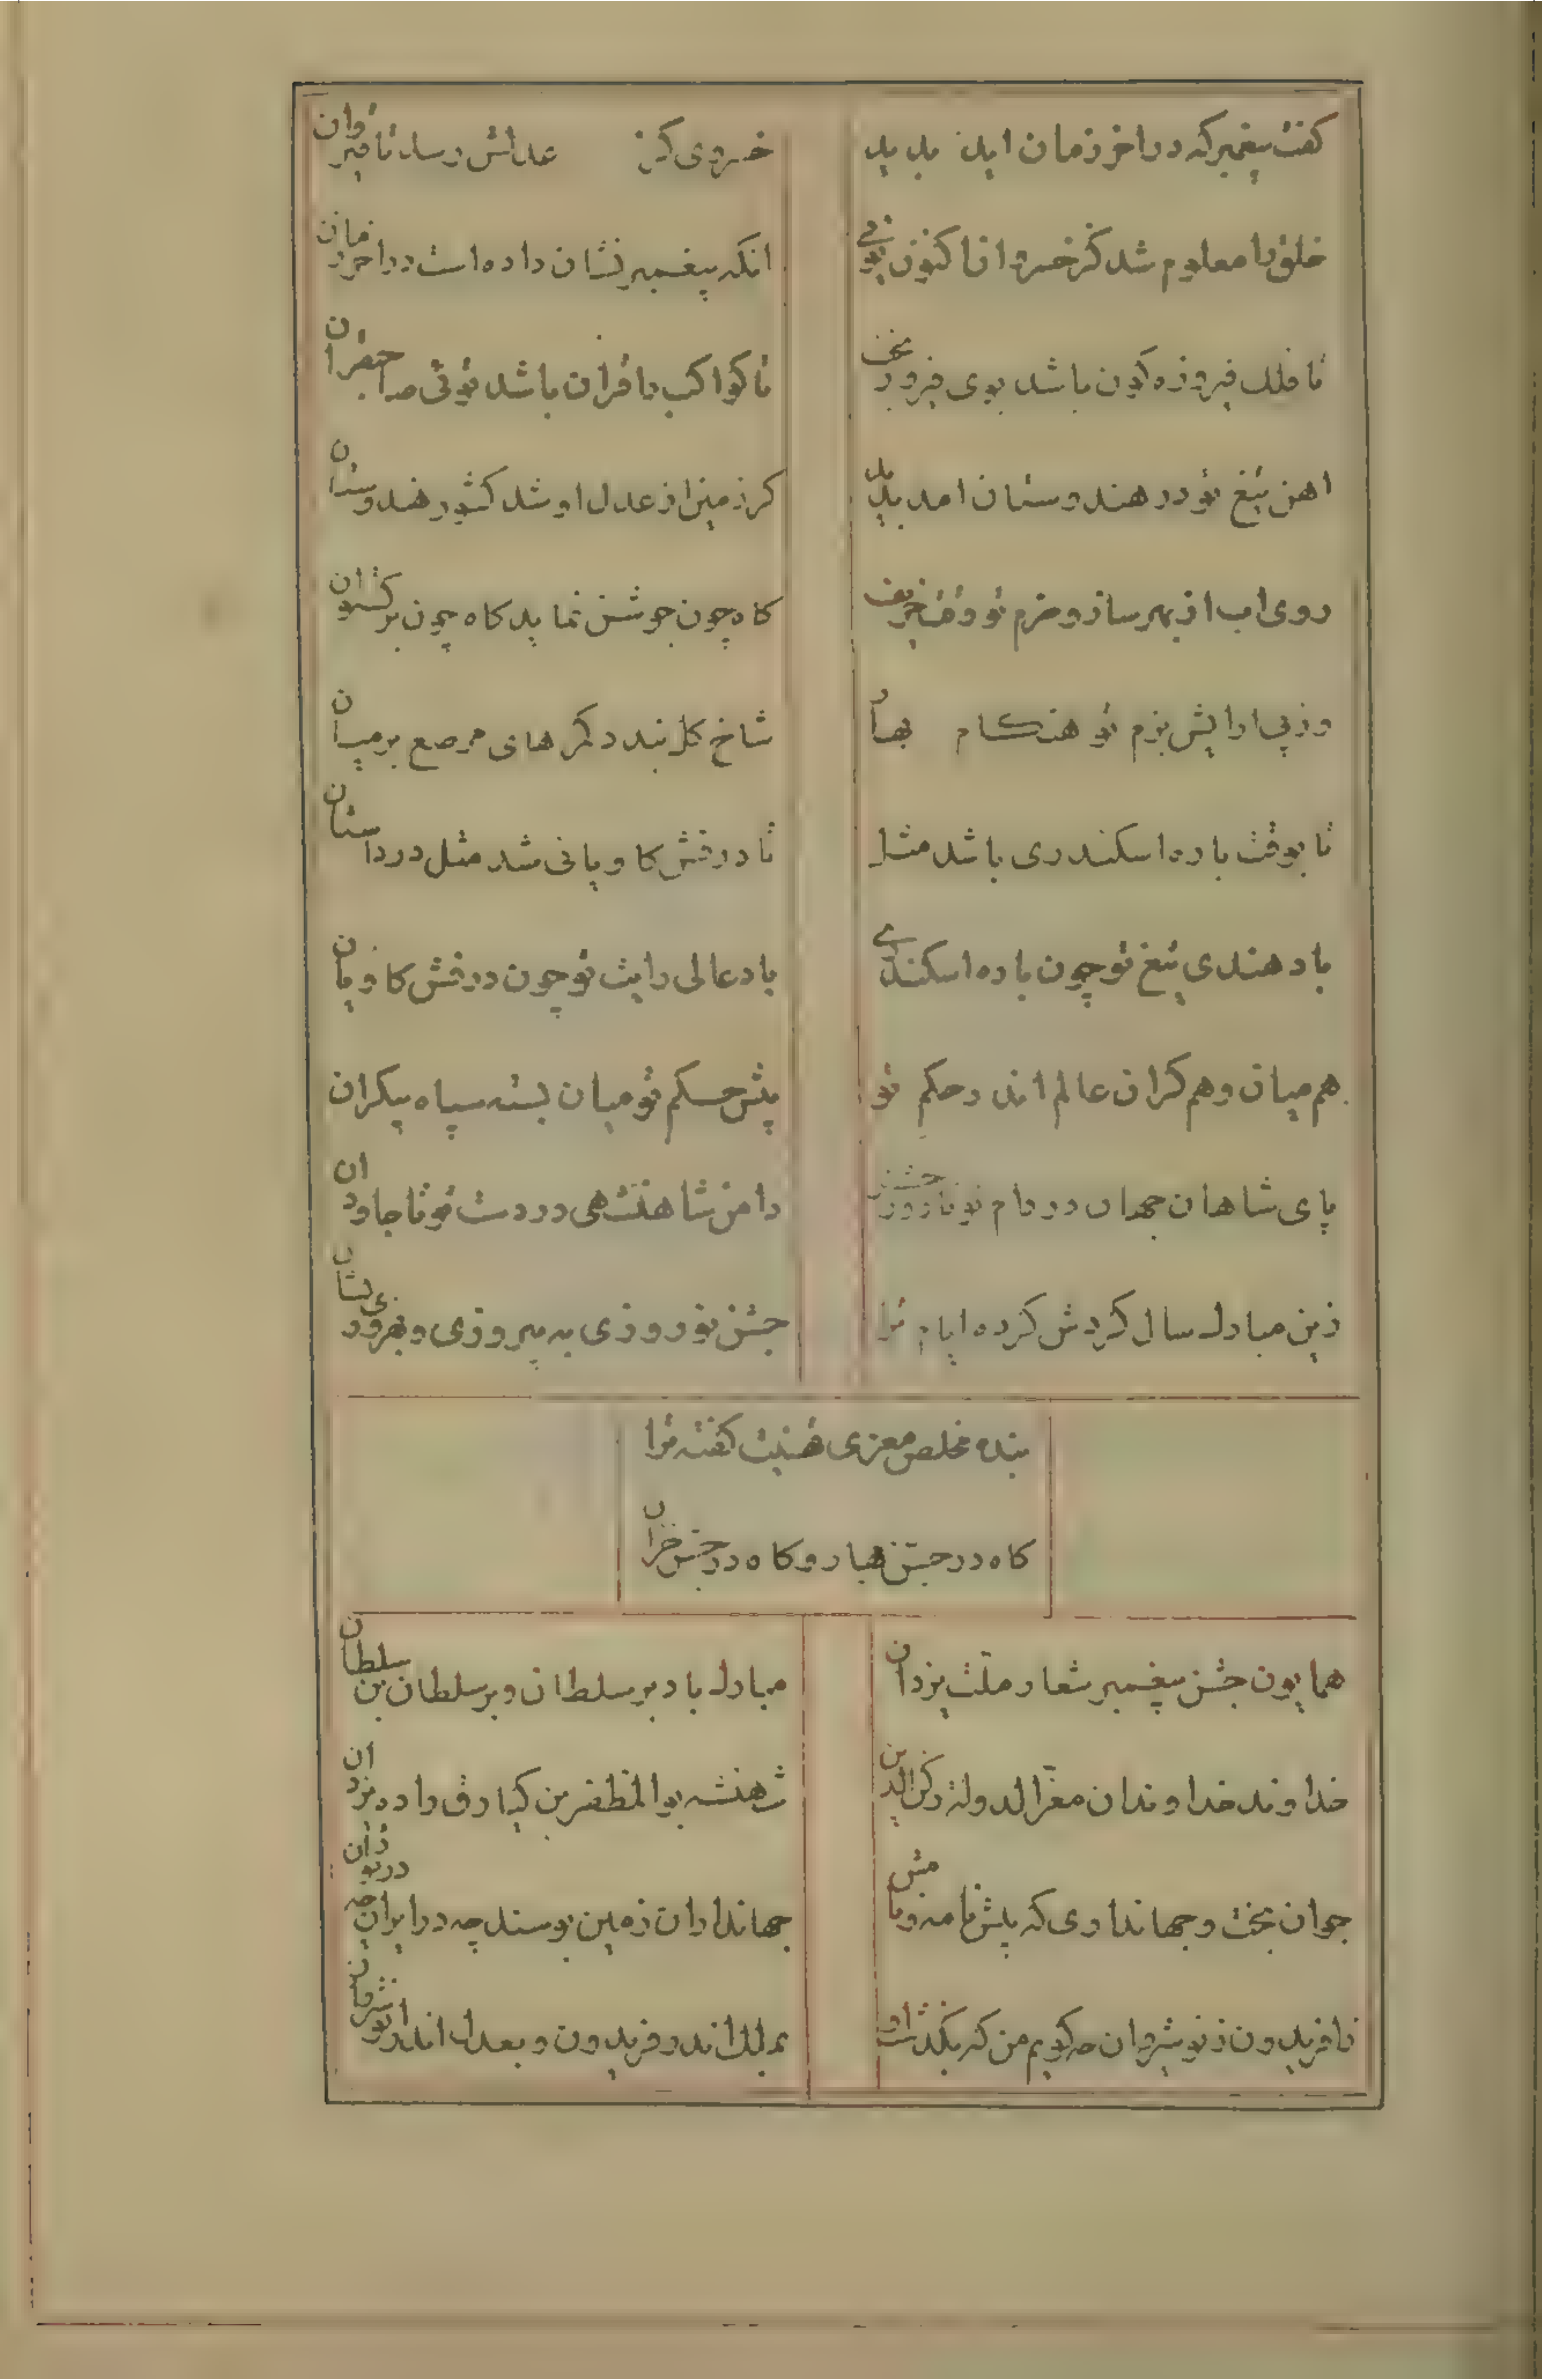 گفت پیغمبر که در اخر زمان اید پدید
خسروی کز عدلش در ساد تا قیروان
خلق را معلوم شد کز خسروان اکنون توئی
انکه پیغمبر نشان داده است در اخر زمان
تا فلک فیروزه کون باشد بوی فیروز بخت
تا کواکب را قران باشد توئی صاحبقران
اهن تیغ تو در هندوستان امد پدید
کز زمین از عدل او شد کشور هندوستان
روی اب از بهر ساز و حزم تو وقت خریف
کاه چون جوشن نماید کاه چون برکستوان
وز پی ارایش بزم تو هنکام بهار
شاخ کل بندد کمرهای مرصع بر میان
تا بوقت باره اسکندری باشد مثل
تا درفش کاویانی شد مثل در داستان
باد هندی تیغ تو چون باره اسکندری
باد عالی رایت تو چون درفش کاویان
هم میان و هم کران عالم اندر حکم تو
پیش حکم تو میان بسته سپاه بیکران
پای شاهان جهان در دام تو تا روز حشر
دامن شاهنشهی در دست تو تا جاودان
زین مبارک سال کردش کرده ایام ترا
جشن نوروزی به پیروزی و بهروزی نشان
بنده مخلص معزی تهنیت کفته ترا
کاه در جشن بهار و کاه در جشن خزان
همایون جشن پیغمبر شعار ملت یزدان
مبارک باد بر سلطان و بر سلطان بن سلطان
خداوند خداوندان معز الدولة رکن الدین
شهنشه بو المظفر بر کیارق داد در یزدان
جوان بخت و جهانداری که پیش نامه و نامش
جهانداران زمین بوسند چه در ایران چه در توران
ز افریدون ز نوشیروان چه کویم من که بکذشت او
بملک اندر فریدون و بعدل اندر انوشروان